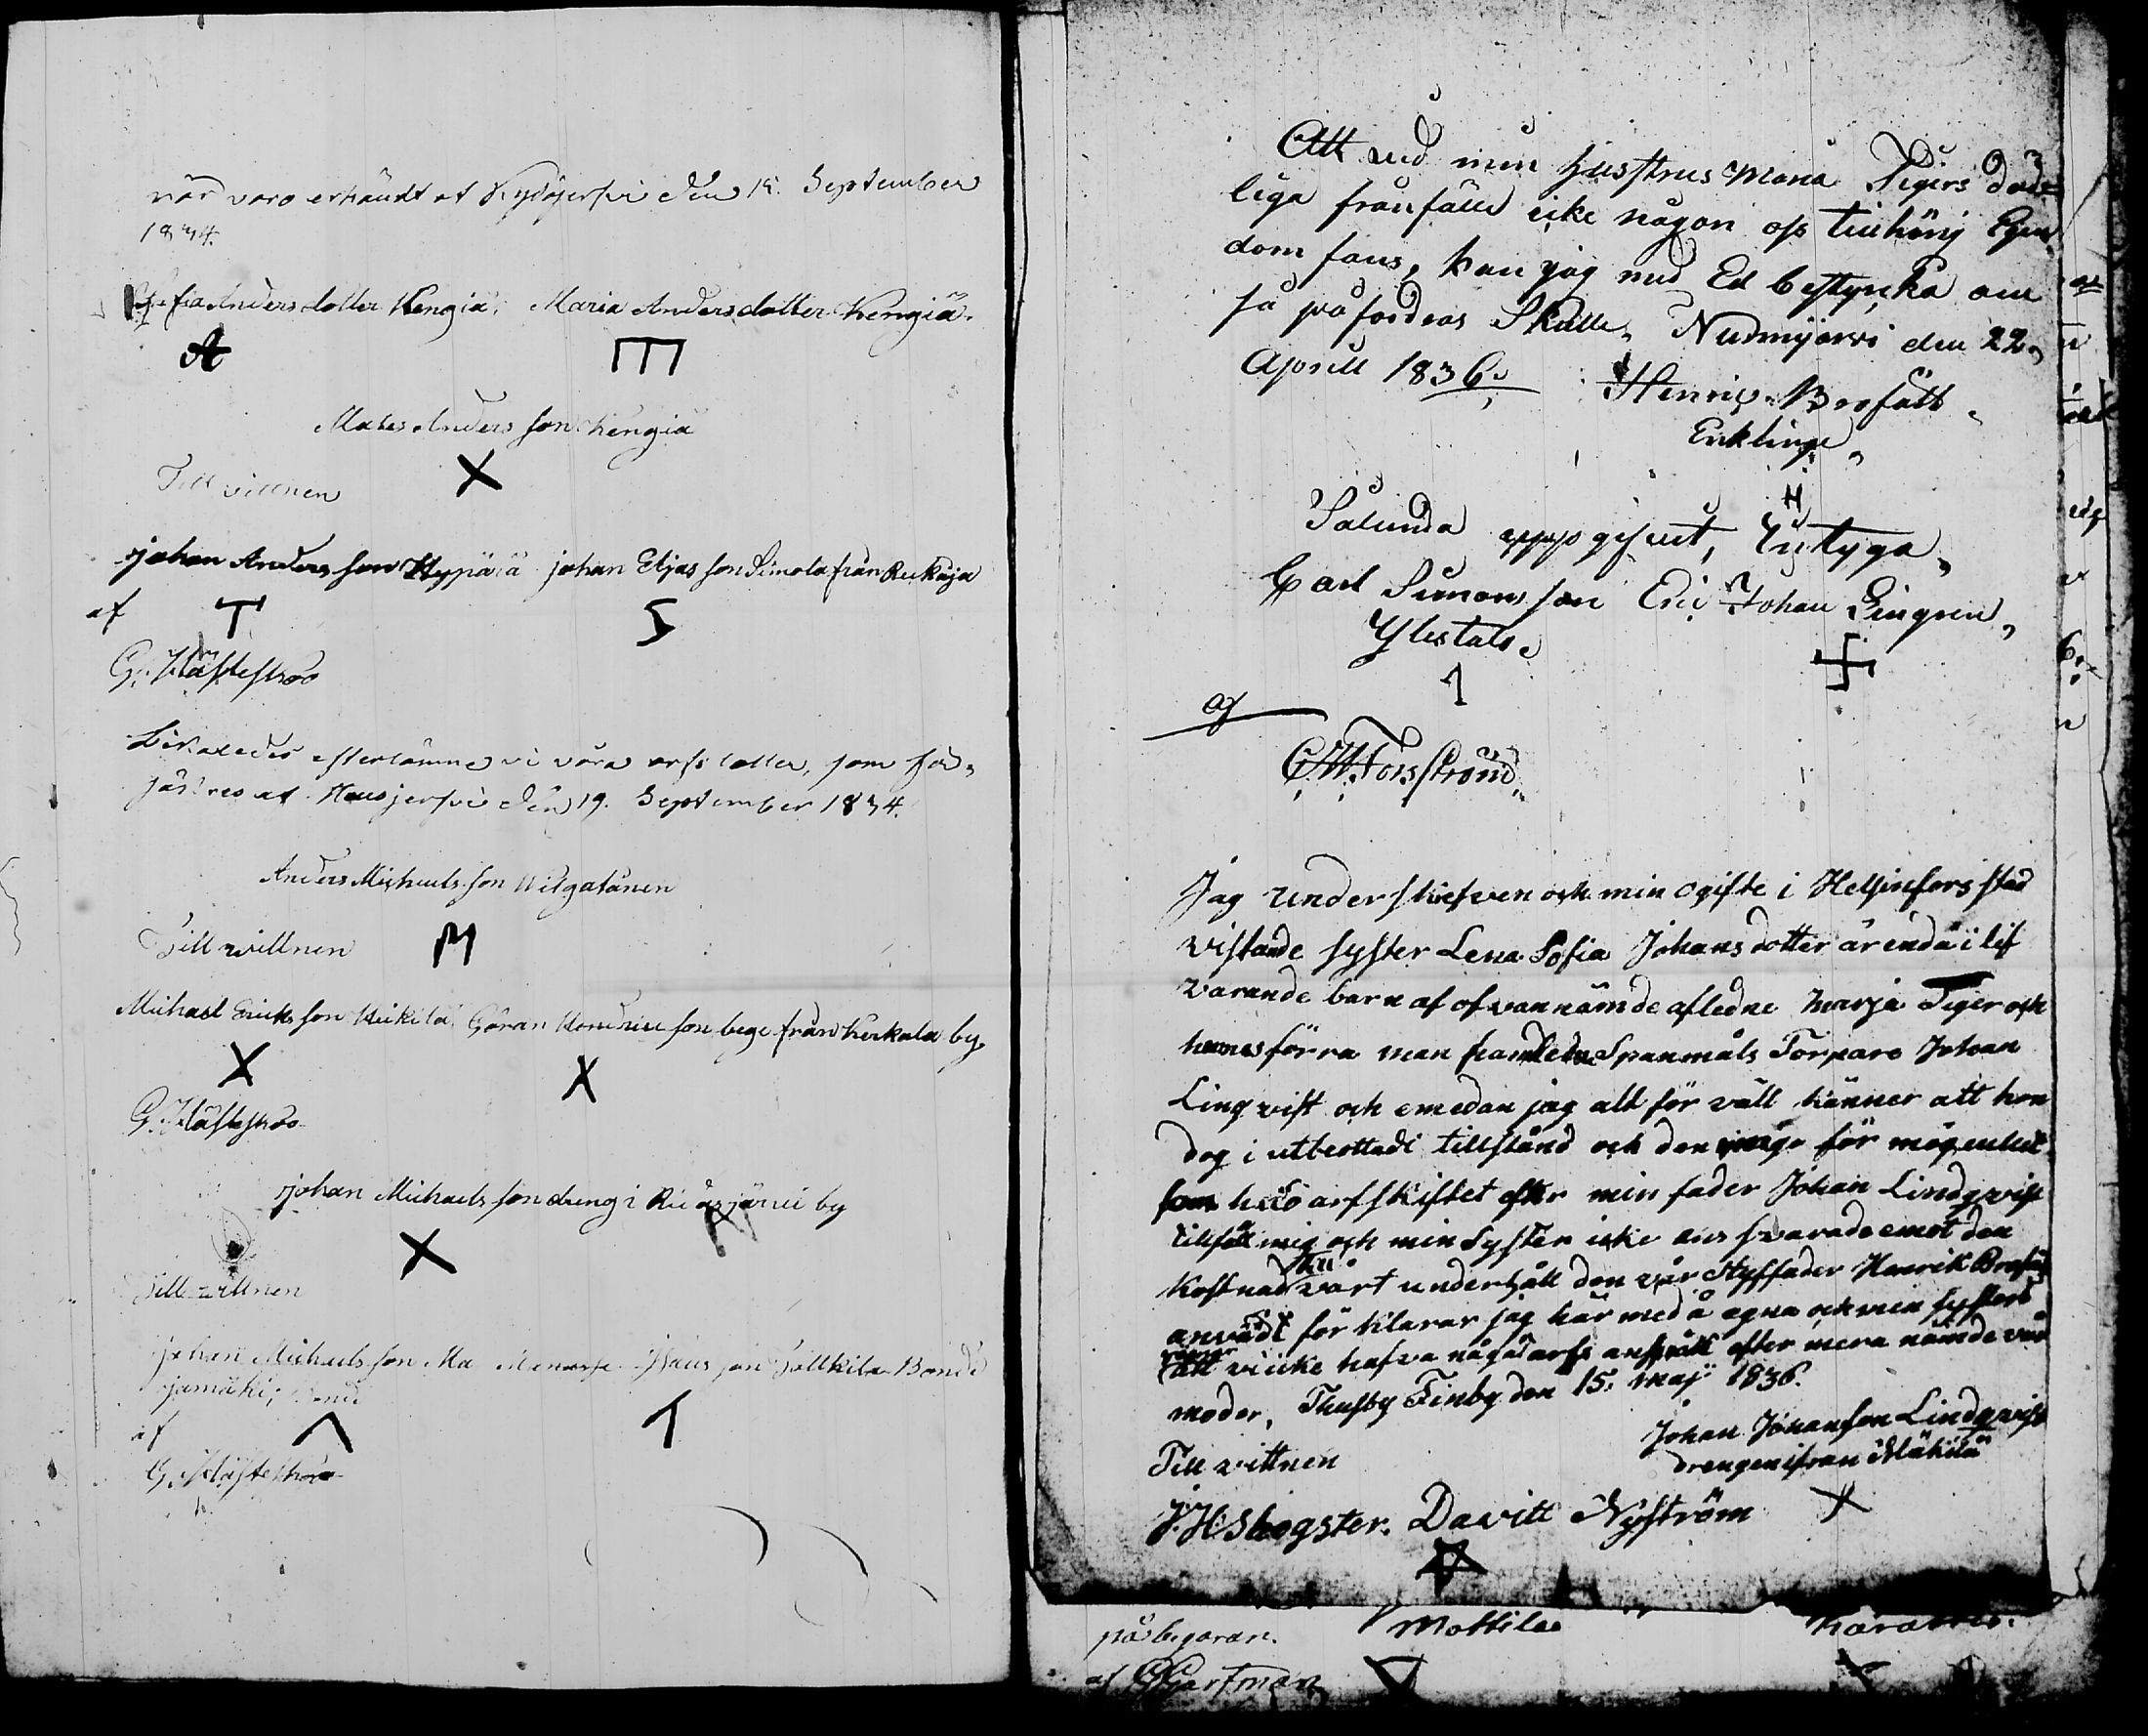 vår varo erkändt at Ryd den 18. September
1834.
Sofia Anders dotter Kengiä, Maria Andersdotter Kengiä.
A
Mates Anders son Kengiä
Till vittnen X
Johan Anders son Hyppärä johan Eljas son Simola från Rukaja
af T S
efterlämne vi våra arfs lotter, som för,
säkres at Hausjerfvi den 19. September 1834.
Anders Michaels son
Till vittnen M
Michael Ericks son Heikilä, Göran Hendric son bege från Kerkala by
X X
Johan Michaels son dreng i by
X
Till vittnen
johan Michaels son Bonde
af
Att ved min husstrus Maria Tigers död=
liga frånfälle icke någon os tillhörig Egen,
dom fans, kan jag med Ed bestyrcka om
så påfordras Skulle, Nurmijärvi den 22,
Aprill 1836. Henric Brofält
Enkling,
H
Sålunda uppgifvit, Intyga,
Carl Simons son Eric Johan Lingren,
Ylestalo.
1
af
C W Forsström
Jag underskrefven och min ogifte i Helsinfors stad
vistande syster Lena Sofia Johans dotter är enda i lif
varande barn af ofvannämde afledne Marja Tiger och
hennes förra man framledne Spanmåls Torpare Johan
Linqvist och emedan jag alt för väll känner att hon
dog i utbottadt tillstånd och den ringa för mögenhet
som hvid arfskiftet efter min fader Johan Lindqvist
tillföll mig och min Syster icke ens svarade emot den
kostnad till vårt underhåll den vår Styffader Henrik Brofält
anvädt för klarar jag här med å egna och min systers
vägnar att vi icke hafva någåt arfs anspråk efter mera nämde vår
moder, Thusby Finby den 15. maj 1836.
Johan Johansson Lindqvist
Till vittnen drengen ifrån Mäkilä
J. H. Skogster. Davitt Nyström X
på begäran. Mottila
af